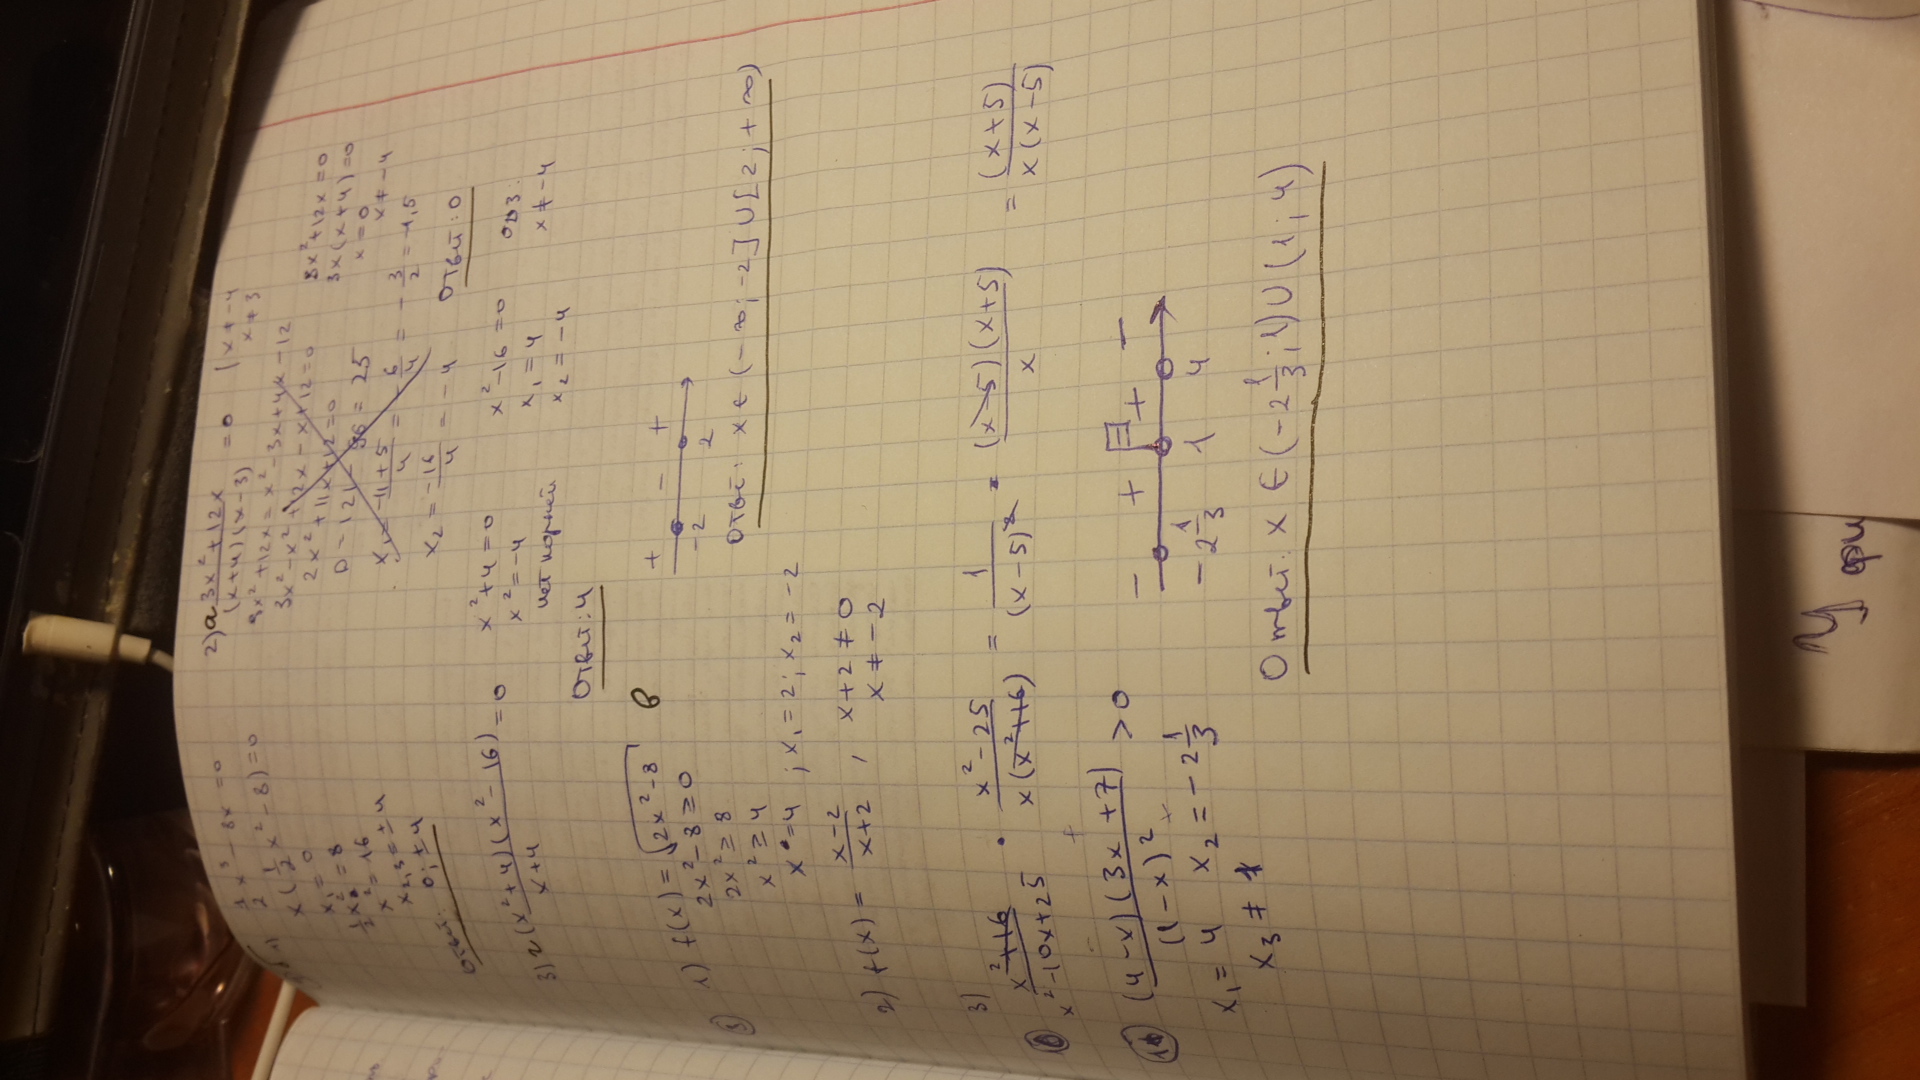 1) 1/2 x³ - 8x = 0
x(1/2 x² - 8) = 0
x₁ = 0
1/2 x² = 8
x² = 16
x₂,₃ = ± 4
Ответ: 0; ± 4
2) а (3x² + 12x)/((x+4)(x-3)) = 0 | x ≠ -4
x ≠ 3
3x² + 12x = x² - 3x + 4x - 12
3x² - x² + 12x - x + 12 = 0
2x² + 11x + 12 = 0
D = 121 - 96 = 25
x₁ = (-11+5)/4 = -6/4 = -3/2 = -1,5
x₂ = -16/4 = -4
3x² + 12x = 0
3x(x+4) = 0
x = 0
x ≠ -4
Ответ: 0
3) г ((x²+4)(x²-16))/(x+4) = 0
x² + 4 = 0
x² = -4
нет корней
x² - 16 = 0
x₁ = 4
x₂ = -4
ОДЗ:
x ≠ -4
Ответ: 4
1) f(x) = √(2x² - 8) в
2x² - 8 ≥ 0
2x² ≥ 8
x² ≥ 4
x² = 4 ; x₁ = 2; x₂ = -2
+ - +
-2 2
Ответ: x ∈ (-∞; -2] ∪ [2; +∞)
2) f(x) = (x-2)/(x+2) , x+2 ≠ 0
x ≠ -2
3) (x²+16)/(x²-10x+25) · (x²-25)/(x(x²+16)) = 1/(x-5)² · ((x-5)(x+5))/x = (x+5)/(x(x-5))
((4-x)(3x+7))/(1-x)² > 0
x₁ = 4 x₂ = -2 1/3
x₃ ≠ 1
- + + -
-2 1/3 1 4
Ответ: x ∈ (-2 1/3; 1) ∪ (1; 4)